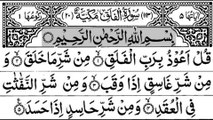 اٰیاتها ۵ (۱۱۳) سُوْرَةُ الْفَلَقِ مَكِّيَّةٌ (۲۰) رکوعها ۱
بِسْمِ اللّٰهِ الرَّحْمٰنِ الرَّحِيْمِ
قُلْ اَعُوْذُ بِرَبِّ الْفَلَقِ ۙ مِنْ شَرِّ مَا خَلَقَ ۙ وَ
مِنْ شَرِّ غَاسِقٍ اِذَا وَقَبَ ۙ وَ مِنْ شَرِّ النَّفّٰثٰتِ
فِي الْعُقَدِ ۙ وَ مِنْ شَرِّ حَاسِدٍ اِذَا حَسَدَ